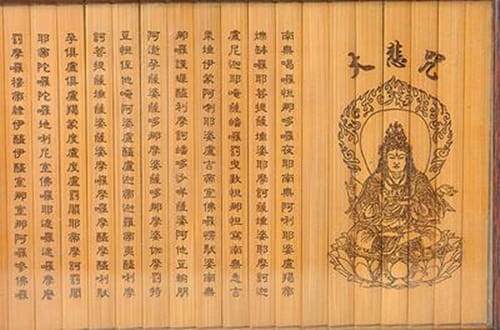 大悲咒
南無喝囉怛那哆囉夜耶南無阿唎耶婆盧羯帝
爍缽囉耶菩提薩埵婆耶摩訶薩埵婆耶摩訶迦
盧尼迦耶唵薩皤囉罰曳數怛那怛寫南無悉吉
栗埵伊蒙阿唎耶婆盧吉帝室佛囉楞馱婆南無
那囉謹墀醯利摩訶皤哆沙咩薩婆阿他豆輸朋
阿逝孕薩婆薩哆那摩婆薩哆那摩婆伽摩罰特
豆怛侄他唵阿婆盧醯盧迦帝迦羅帝夷醯唎摩
訶菩提薩埵薩婆薩婆摩囉摩囉摩醯摩醯唎馱
孕俱盧俱盧羯蒙度盧度盧罰闍耶帝摩訶罰闍
耶帝陀囉陀囉地唎尼室佛囉耶遮囉遮囉摩麼
罰摩囉穆帝隸伊醯伊醯室那室那阿囉嘇佛囉